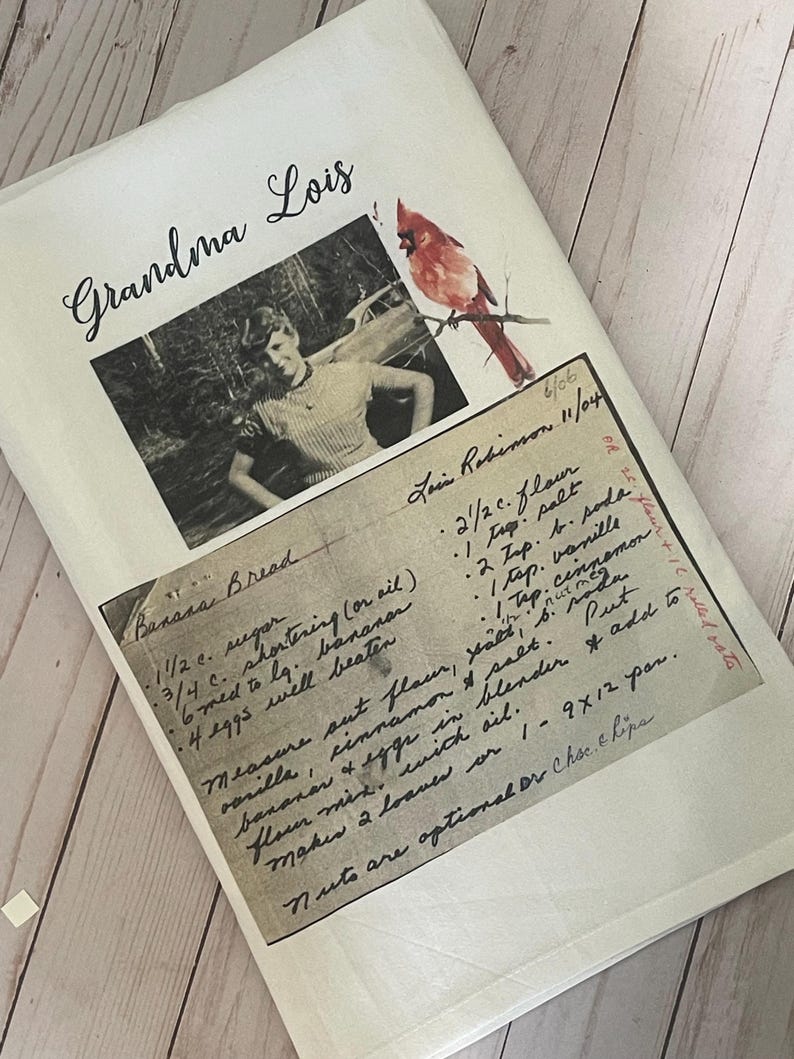 Grandma Lois
6/06
Lois Robinson 11/04
Banana Bread
· 1 1/2 c. sugar
· 3/4 c. shortening (or oil)
· 6 med to lg. bananas
· 4 eggs well beaten
· 2 1/2 c. flour
· 1 tsp. salt
· 2 tsp. b. soda
· 1 tsp. vanilla
· 1 tsp. cinnamon
nutmeg
OR 2c. flour + 1c rolled oats
Measure out flour, salt, b. soda
vanilla, cinnamon & salt. Put
bananas & eggs in blender & add to
flour mix. with oil.
Makes 2 loaves or 1 - 9x12 pan.
Nuts are optional or Choc. chips